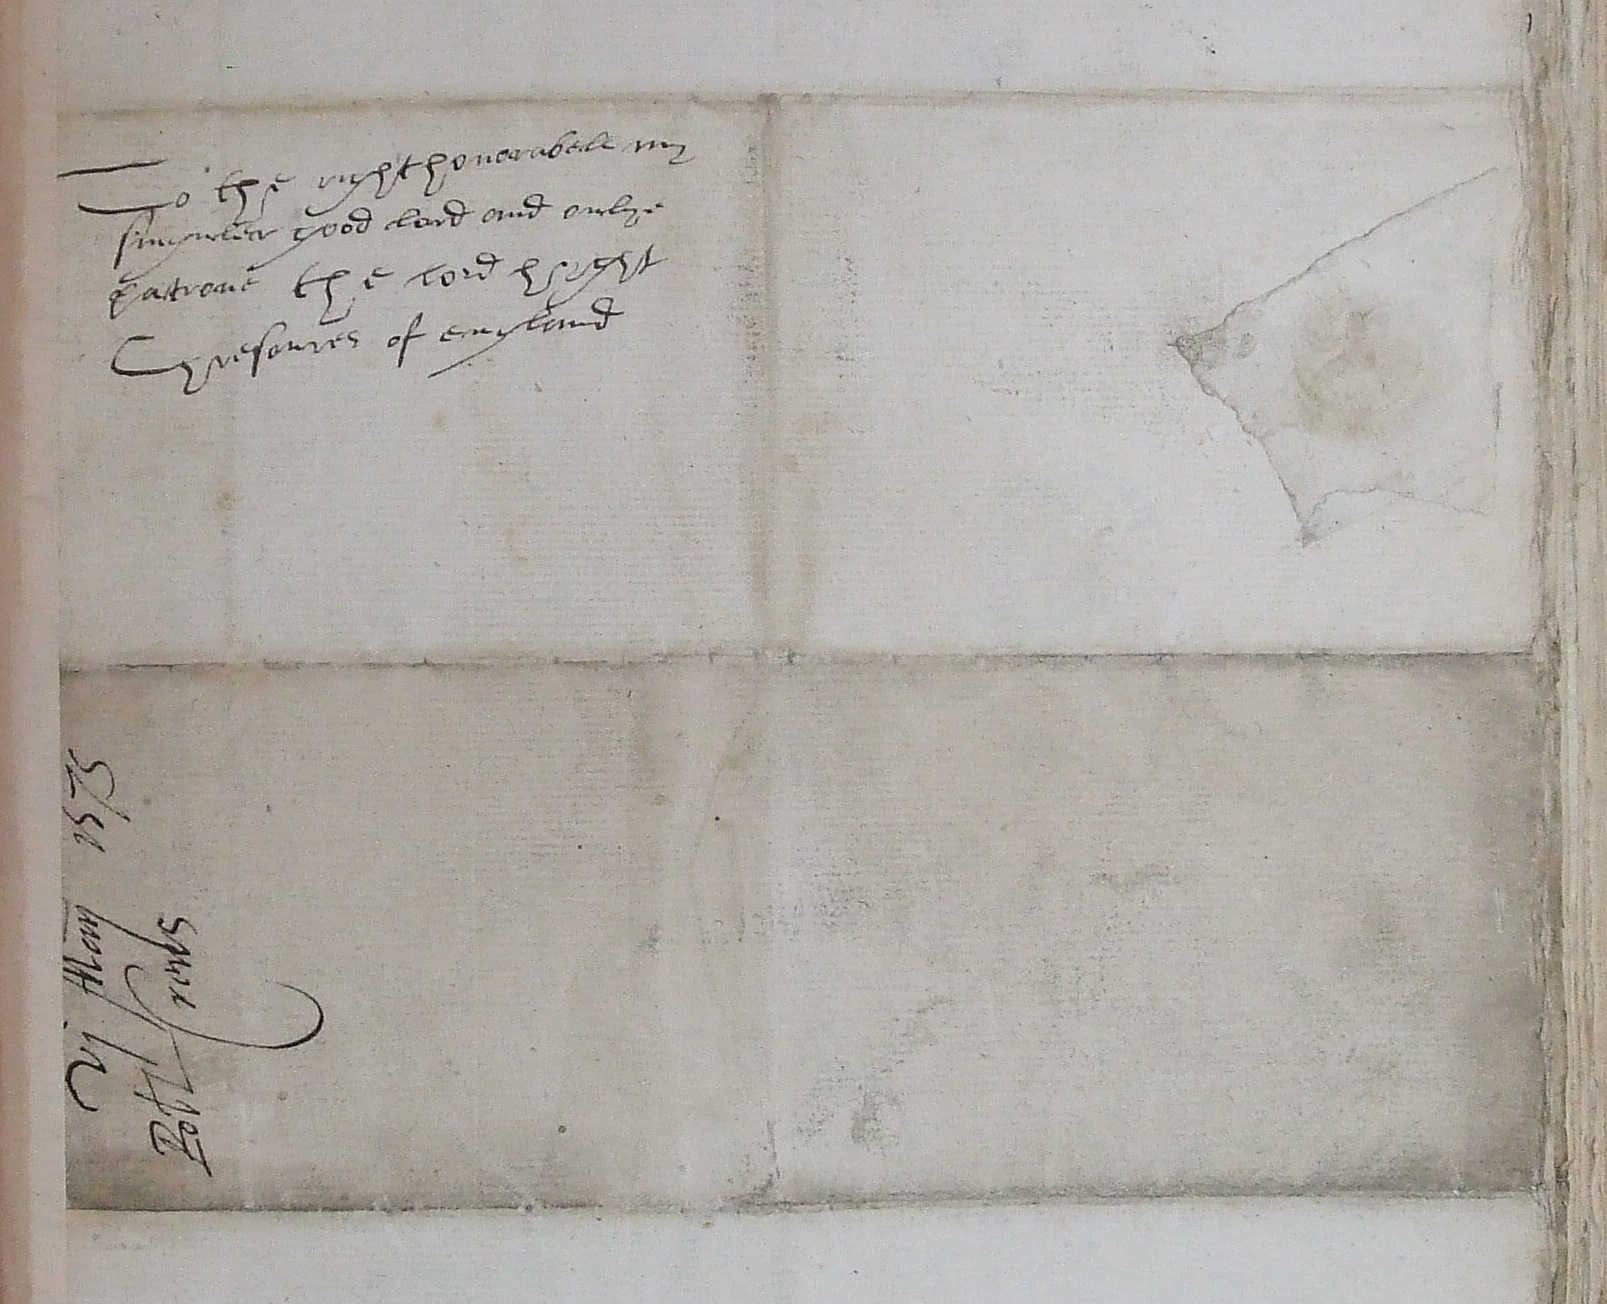 To the right honorabele my
singuler good lord and onlye
patrone the lord hyght
Tresourer of england
vj May 1575
Robt